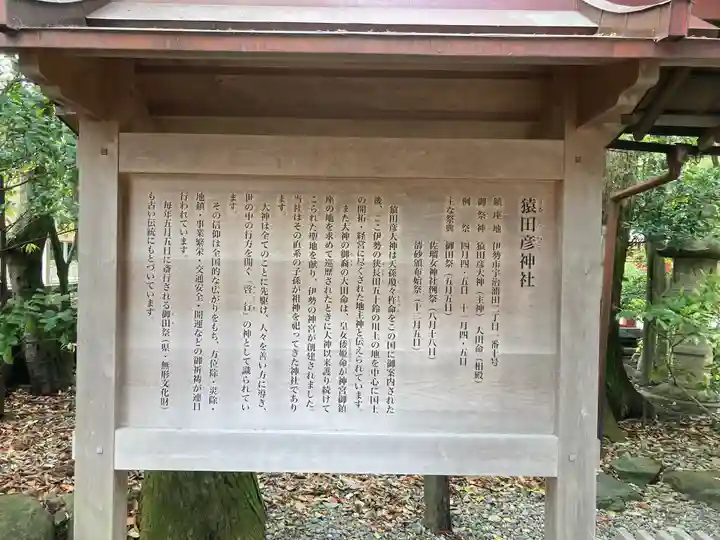 猿田彦神社
鎮座地 伊勢市宇治浦田二丁目一番十号
御祭神 猿田彦大神（主神） 大田命（相殿）
例祭 四月四・五日 十一月四・五日
主な祭典 御田祭（五月五日）
佐瑠女神社例祭（八月十七・八日）
清砂頒布始祭（十二月五日）
猿田彦大神は天孫瓊々杵命をこの国に御案内された
後、ここ伊勢の狭長田五十鈴の川上の地を中心に国土
の開拓・経営に尽くされた地主神と伝えられています。
また大神の御裔の大田命は、皇女倭姫命が神宮御鎮
座の地を求めて巡歴されたときに大神以来護り続けて
こられた聖地を献り、伊勢の神宮が創建されました。
当社はその直系の子孫が祖神を祀ってきた神社であり
ます。
大神は全てのことに先駆け、人々を善い方に導き、
世の中の行方を開く〝啓行〟の神として識られてい
ます。
その信仰は全国的な広がりをもち、方位除・災除・
地鎮・事業繁栄・交通安全・開運などの御祈祷が連日
行われています。
毎年五月五日に斎行される御田祭（県・無形文化財）
も古い伝統にもとづいています。